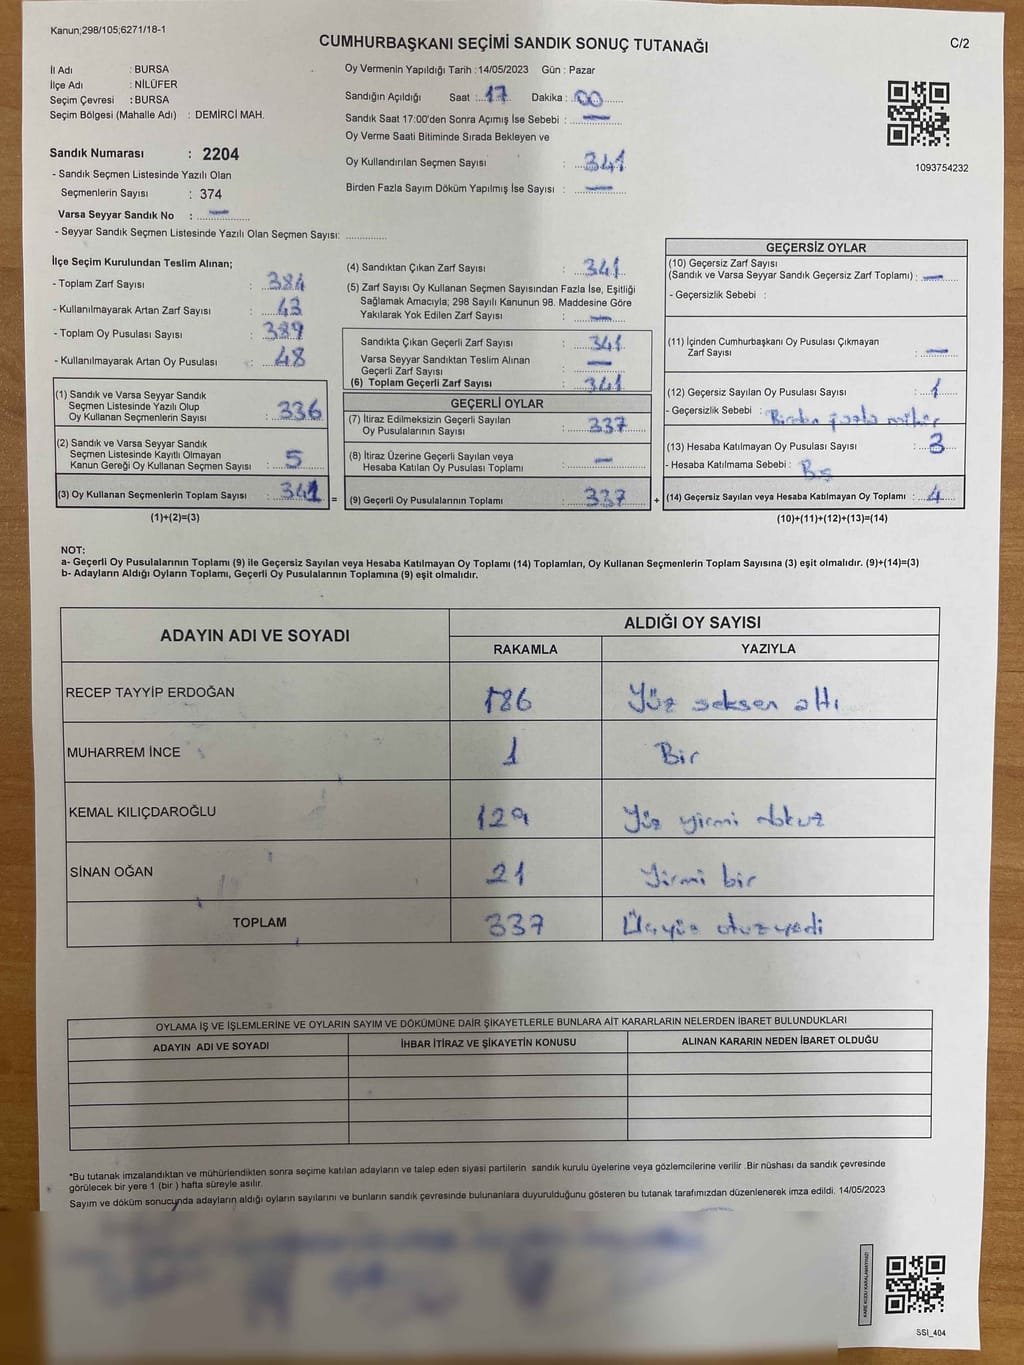 Kanun;298/105;6271/18-1
CUMHURBAŞKANI SEÇİMİ SANDIK SONUÇ TUTANAĞI
C/2
İl Adı : BURSA
İlçe Adı : NİLÜFER
Seçim Çevresi : BURSA
Seçim Bölgesi (Mahalle Adı) : DEMİRCİ MAH.
Sandık Numarası : 2204
- Sandık Seçmen Listesinde Yazılı Olan
Seçmenlerin Sayısı : 374
Varsa Seyyar Sandık No : —
- Seyyar Sandık Seçmen Listesinde Yazılı Olan Seçmen Sayısı: ..............
Oy Vermenin Yapıldığı Tarih : 14/05/2023 Gün : Pazar
Sandığın Açıldığı Saat : 17 Dakika : 00
Sandık Saat 17:00'den Sonra Açımış İse Sebebi : —
Oy Verme Saati Bitiminde Sırada Bekleyen ve
Oy Kullandırılan Seçmen Sayısı : 341
Birden Fazla Sayım Döküm Yapılmış İse Sayısı : —
1093754232
İlçe Seçim Kurulundan Teslim Alınan;
- Toplam Zarf Sayısı : 384
- Kullanılmayarak Artan Zarf Sayısı : 43
- Toplam Oy Pusulası Sayısı : 389
- Kullanılmayarak Artan Oy Pusulası : 48
(1) Sandık ve Varsa Seyyar Sandık
Seçmen Listesinde Yazılı Olup
Oy Kullanan Seçmenlerin Sayısı : 336
(2) Sandık ve Varsa Seyyar Sandık
Seçmen Listesinde Kayıtlı Olmayan
Kanun Gereği Oy Kullanan Seçmen Sayısı : 5
(3) Oy Kullanan Seçmenlerin Toplam Sayısı : 341 =
(1)+(2)=(3)
(4) Sandıktan Çıkan Zarf Sayısı : 341
(5) Zarf Sayısı Oy Kullanan Seçmen Sayısından Fazla İse, Eşitliği
Sağlamak Amacıyla; 298 Sayılı Kanunun 98. Maddesine Göre
Yakılarak Yok Edilen Zarf Sayısı : —
Sandıkta Çıkan Geçerli Zarf Sayısı : 341
Varsa Seyyar Sandıktan Teslim Alınan
Geçerli Zarf Sayısı : —
(6) Toplam Geçerli Zarf Sayısı : 341
GEÇERLİ OYLAR
(7) İtiraz Edilmeksizin Geçerli Sayılan
Oy Pusulalarının Sayısı : 337
(8) İtiraz Üzerine Geçerli Sayılan veya
Hesaba Katılan Oy Pusulası Toplamı : —
(9) Geçerli Oy Pusulalarının Toplamı : 337 +
GEÇERSİZ OYLAR
(10) Geçersiz Zarf Sayısı
(Sandık ve Varsa Seyyar Sandık Geçersiz Zarf Toplamı) : —
- Geçersizlik Sebebi :
(11) İçinden Cumhurbaşkanı Oy Pusulası Çıkmayan
Zarf Sayısı : —
(12) Geçersiz Sayılan Oy Pusulası Sayısı : 1
- Geçersizlik Sebebi : Birden fazla mühür
(13) Hesaba Katılmayan Oy Pusulası Sayısı : 3
- Hesaba Katılmama Sebebi : Boş
(14) Geçersiz Sayılan veya Hesaba Katılmayan Oy Toplamı : 4
(10)+(11)+(12)+(13)=(14)
NOT:
a- Geçerli Oy Pusulalarının Toplamı (9) ile Geçersiz Sayılan veya Hesaba Katılmayan Oy Toplamı (14) Toplamları, Oy Kullanan Seçmenlerin Toplam Sayısına (3) eşit olmalıdır. (9)+(14)=(3)
b- Adayların Aldığı Oyların Toplamı, Geçerli Oy Pusulalarının Toplamına (9) eşit olmalıdır.
ADAYIN ADI VE SOYADI ALDIĞI OY SAYISI
RAKAMLA YAZIYLA
RECEP TAYYİP ERDOĞAN 186 Yüz seksen altı
MUHARREM İNCE 1 Bir
KEMAL KILIÇDAROĞLU 129 Yüz yirmi dokuz
SİNAN OĞAN 21 Yirmi bir
TOPLAM 337 Üçyüz otuzyedi
OYLAMA İŞ VE İŞLEMLERİNE VE OYLARIN SAYIM VE DÖKÜMÜNE DAİR ŞİKAYETLERLE BUNLARA AİT KARARLARIN NELERDEN İBARET BULUNDUKLARI
ADAYIN ADI VE SOYADI İHBAR İTİRAZ VE ŞİKAYETİN KONUSU ALINAN KARARIN NEDEN İBARET OLDUĞU
*Bu tutanak imzalandıktan ve mühürlendikten sonra seçime katılan adayların ve talep eden siyasi partilerin sandık kurulu üyelerine veya gözlemcilerine verilir .Bir nüshası da sandık çevresinde
görülecek bir yere 1 (bir ) hafta süreyle asılır.
Sayım ve döküm sonucunda adayların aldığı oyların sayılarını ve bunların sandık çevresinde bulunanlara duyurulduğunu gösteren bu tutanak tarafımızdan düzenlenerek imza edildi. 14/05/2023
KARE KODU KARALAMAYINIZ!
SSİ_404